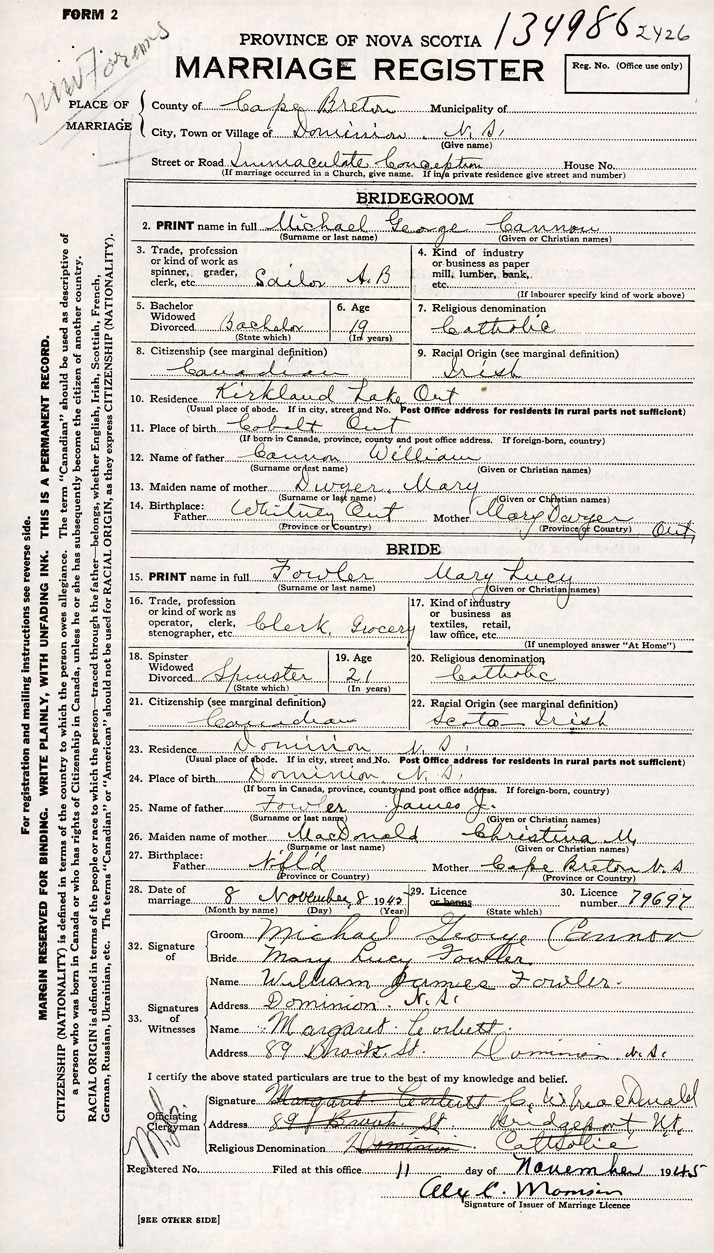 FORM 2
134986 2426
PROVINCE OF NOVA SCOTIA
MARRIAGE REGISTER
Reg. No. (Office use only)
PLACE OF MARRIAGE
County of Cape Breton Municipality of
City, Town or Village of Dominion N. S.
(Give name)
Street or Road Immaculate Conception House No.
(If marriage occurred in a Church, give name. If in a private residence give street and number)
BRIDEGROOM
2. PRINT name in full Michael George Cannon
(Surname or last name) (Given or Christian names)
3. Trade, profession or kind of work as spinner, grader, clerk, etc. Sailor A.B
4. Kind of industry or business as paper mill, lumber, bank, etc.
(If labourer specify kind of work above)
5. Bachelor Widowed Divorced Bachelor
(State which)
6. Age 19
(In years)
7. Religious denomination Catholic
8. Citizenship (see marginal definition) Canadian
9. Racial Origin (see marginal definition) Irish
10. Residence Kirkland Lake Ont
(Usual place of abode. If in city, street and No. Post Office address for residents in rural parts not sufficient)
11. Place of birth Cobalt Ont
(If born in Canada, province, county and post office address. If foreign-born, country)
12. Name of father Cannon William
(Surname or last name) (Given or Christian names)
13. Maiden name of mother Dwyer, Mary
(Surname or last name) (Given or Christian names)
14. Birthplace: Father Whitney Ont Mother Mary Dwyer Ont
(Province or Country) (Province or Country)
BRIDE
15. PRINT name in full Fowler Mary Lucy
(Surname or last name) (Given or Christian names)
16. Trade, profession or kind of work as operator, clerk, stenographer, etc. Clerk, Grocery
17. Kind of industry or business as textiles, retail, law office, etc.
(If unemployed answer "At Home")
18. Spinster Widowed Divorced Spinster
(State which)
19. Age 21
(In years)
20. Religious denomination Catholic
21. Citizenship (see marginal definition) Canadian
22. Racial Origin (see marginal definition) Scoto Irish
23. Residence Dominion N. S.
(Usual place of abode. If in city, street and No. Post Office address for residents in rural parts not sufficient)
24. Place of birth Dominion N. S.
(If born in Canada, province, county and post office address. If foreign-born, country)
25. Name of father Fowler James J.
(Surname or last name) (Given or Christian names)
26. Maiden name of mother MacDonald Christina M.
(Surname or last name) (Given or Christian names)
27. Birthplace: Father Nfl'd Mother Cape Breton N. S
(Province or Country) (Province or Country)
28. Date of marriage 8 November 8 1945
(Month by name) (Day) (Year)
29. Licence or banns
(State which)
30. Licence number 79697
32. Signature of
Groom Michael George Cannon
Bride Mary Lucy Fowler
33. Signatures of Witnesses
Name William James Fowler
Address Dominion. N. S.
Name Margaret Corbett
Address 89 Brook St. Dominion N. S.
I certify the above stated particulars are true to the best of my knowledge and belief.
Officiating Clergyman
Signature Margaret Corbett C. W. MacDonald
Address 89 Brook St Bridgeport, N.S.
Religious Denomination Dominion Catholic
Registered No. Filed at this office 11 day of November 1945
Signature of Issuer of Marriage Licence
[SEE OTHER SIDE]
For registration and mailing instructions see reverse side.
MARGIN RESERVED FOR BINDING. WRITE PLAINLY, WITH UNFADING INK. THIS IS A PERMANENT RECORD.
CITIZENSHIP (NATIONALITY) is defined in terms of the country to which the person owes allegiance. The term "Canadian" should be used as descriptive of
a person who was born in Canada or who has rights of Citizenship in Canada, unless he or she has subsequently become the citizen of another country.
RACIAL ORIGIN is defined in terms of the people or race to which the person—traced through the father—belongs, whether English, Irish, Scottish, French,
German, Russian, Ukrainian, etc. The terms "Canadian" or "American" should not be used for RACIAL ORIGIN, as they express CITIZENSHIP (NATIONALITY).